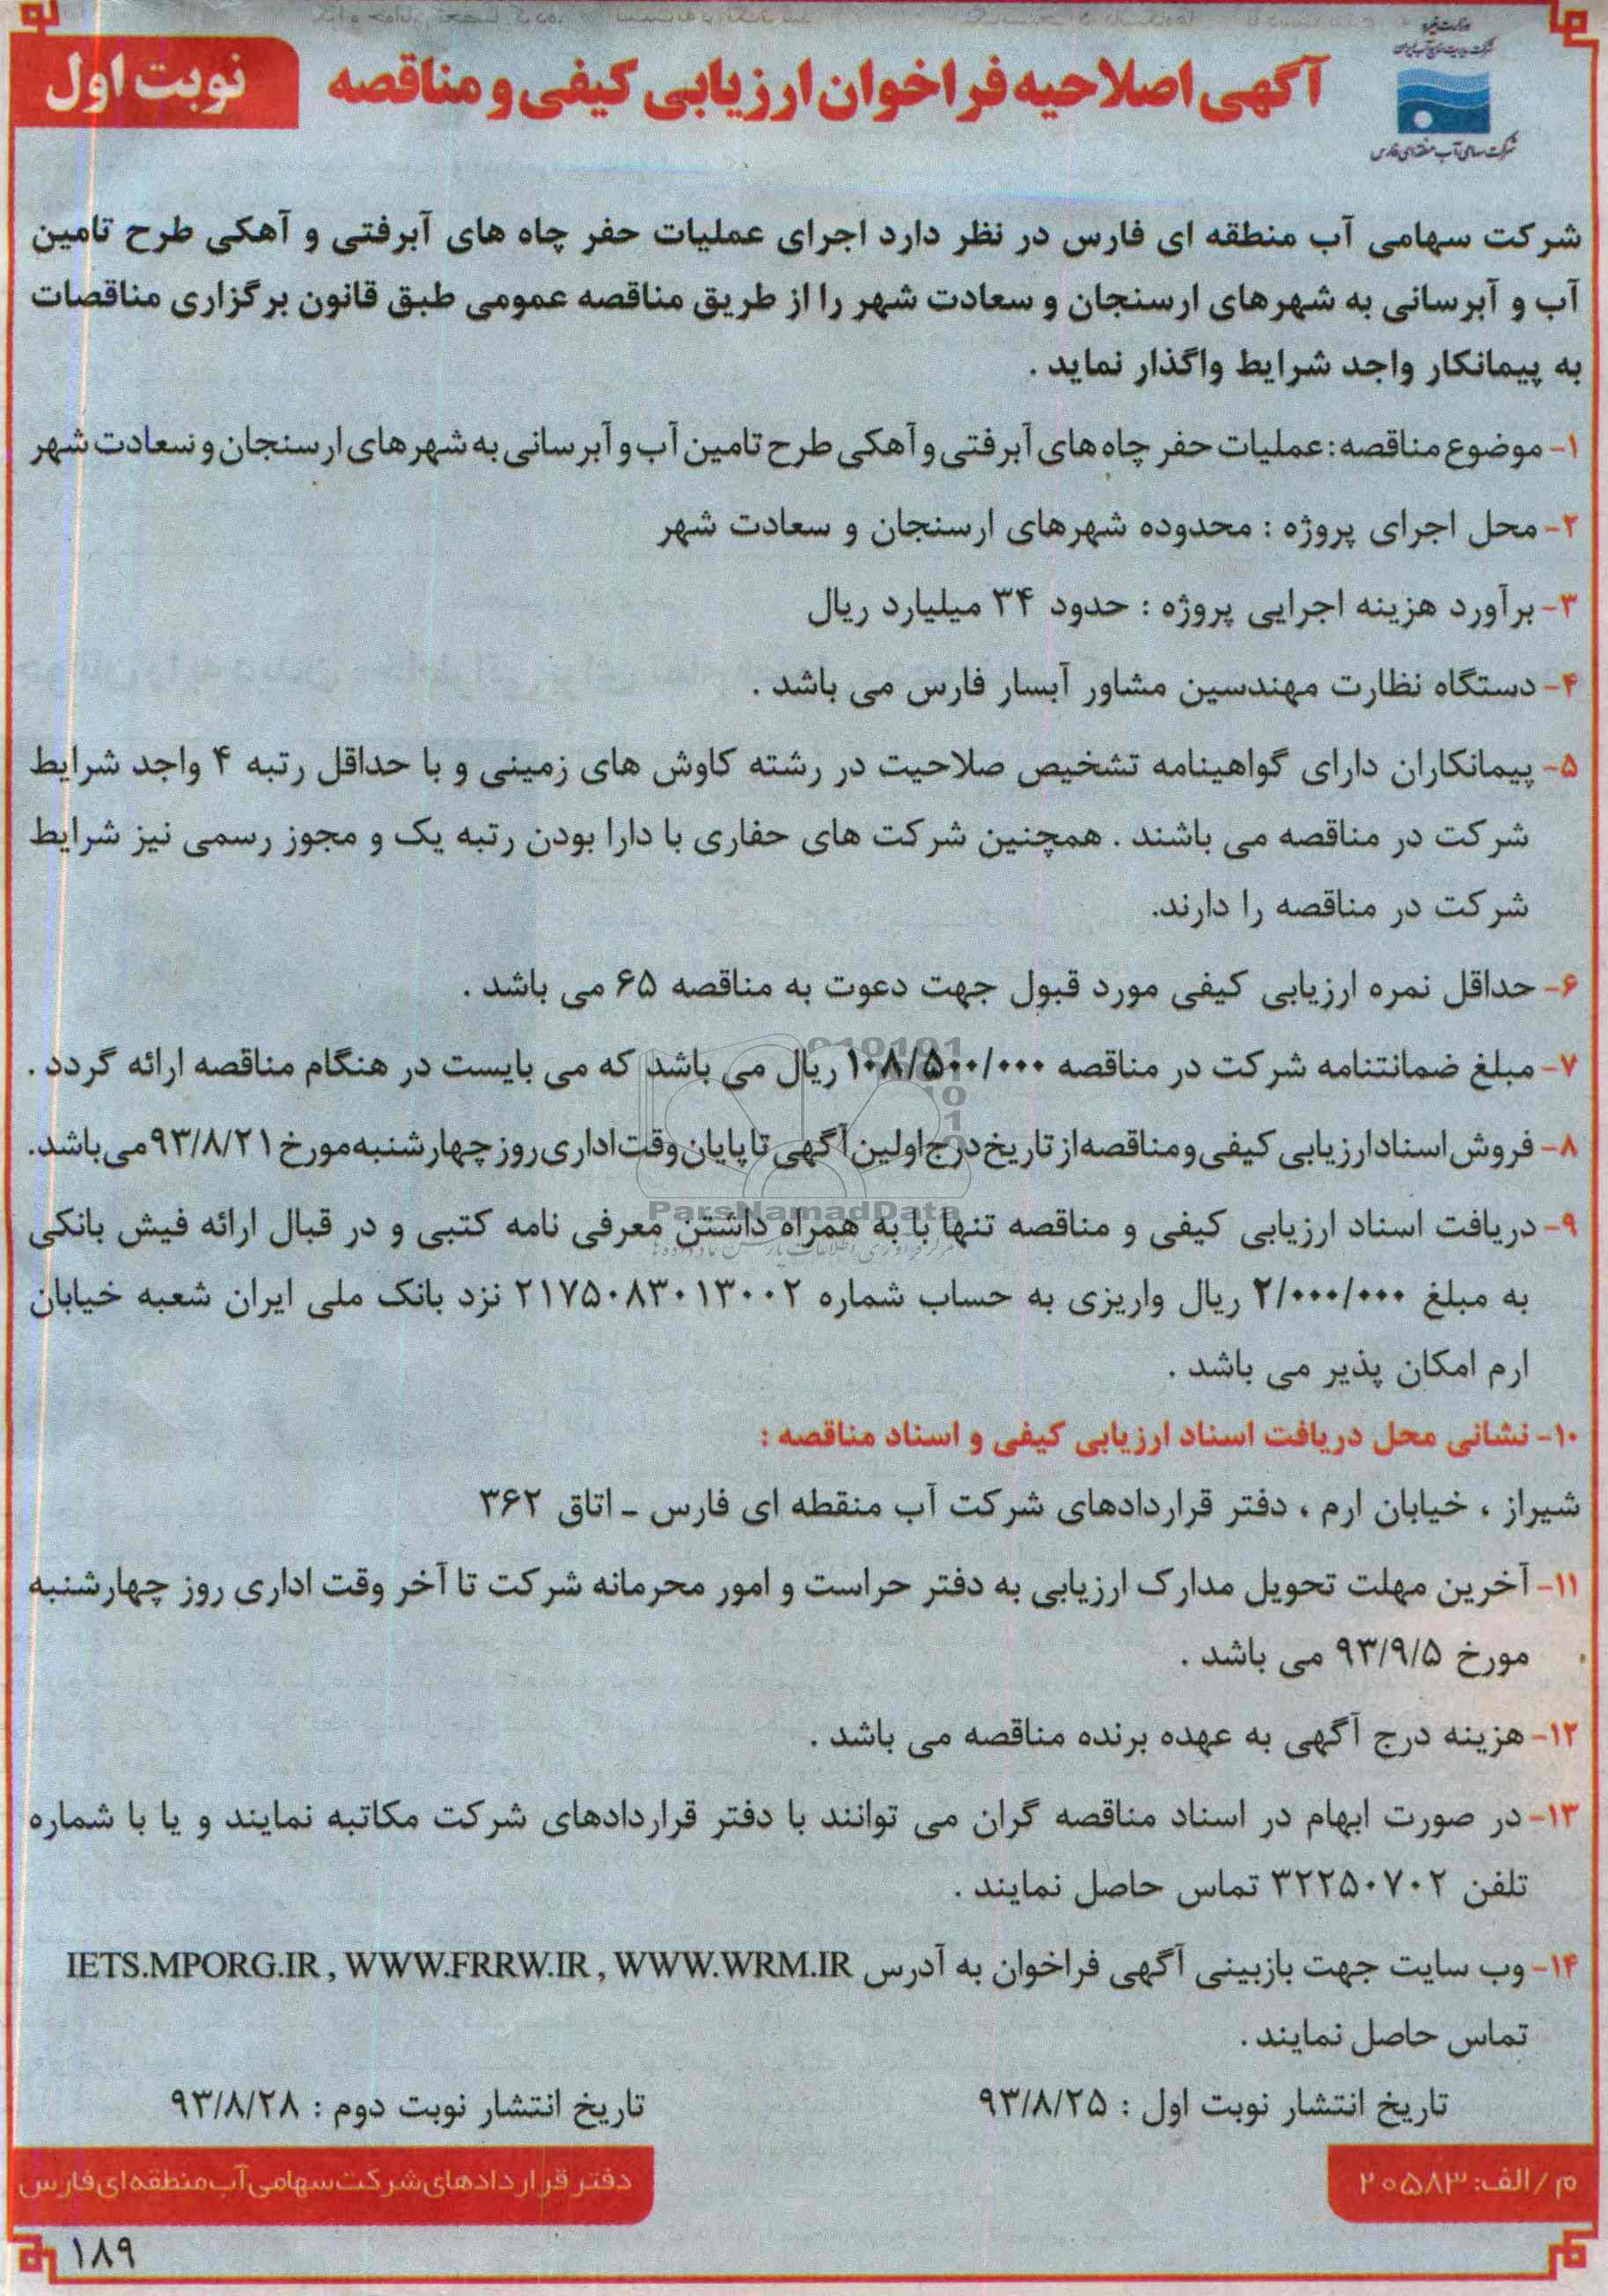 وزارت نیرو
شرکت مدیریت منابع آب ایران
شرکت سهامی آب منطقه‌ای فارس
آگهی اصلاحیه فراخوان ارزیابی کیفی و مناقصه
نوبت اول
شرکت سهامی آب منطقه ای فارس در نظر دارد اجرای عملیات حفر چاه های آبرفتی و آهکی طرح تامین
آب و آبرسانی به شهرهای ارسنجان و سعادت شهر را از طریق مناقصه عمومی طبق قانون برگزاری مناقصات
به پیمانکار واجد شرایط واگذار نماید .
۱- موضوع مناقصه : عملیات حفر چاه های آبرفتی و آهکی طرح تامین آب و آبرسانی به شهرهای ارسنجان و سعادت شهر
۲- محل اجرای پروژه : محدوده شهرهای ارسنجان و سعادت شهر
۳- برآورد هزینه اجرایی پروژه : حدود ۳۴ میلیارد ریال
۴- دستگاه نظارت مهندسین مشاور آبسار فارس می باشد .
۵- پیمانکاران دارای گواهینامه تشخیص صلاحیت در رشته کاوش های زمینی و با حداقل رتبه ۴ واجد شرایط
شرکت در مناقصه می باشند . همچنین شرکت های حفاری با دارا بودن رتبه یک و مجوز رسمی نیز شرایط
شرکت در مناقصه را دارند.
۶- حداقل نمره ارزیابی کیفی مورد قبول جهت دعوت به مناقصه ۶۵ می باشد .
۷- مبلغ ضمانتنامه شرکت در مناقصه ۱۰۸/۵۰۰/۰۰۰ ریال می باشد که می بایست در هنگام مناقصه ارائه گردد .
۸- فروش اسناد ارزیابی کیفی و مناقصه از تاریخ درج اولین آگهی تا پایان وقت اداری روز چهارشنبه مورخ ۹۳/۸/۲۱ می باشد.
ParsNamadData
۹- دریافت اسناد ارزیابی کیفی و مناقصه تنها با به همراه داشتن معرفی نامه کتبی و در قبال ارائه فیش بانکی
به مبلغ ۲/۰۰۰/۰۰۰ ریال واریزی به حساب شماره ۲۱۷۵۰۸۳۰۱۳۰۰۲ نزد بانک ملی ایران شعبه خیابان
ارم امکان پذیر می باشد .
۱۰- نشانی محل دریافت اسناد ارزیابی کیفی و اسناد مناقصه :
شیراز ، خیابان ارم ، دفتر قراردادهای شرکت آب منقطه ای فارس ـ اتاق ۳۶۲
۱۱- آخرین مهلت تحویل مدارک ارزیابی به دفتر حراست و امور محرمانه شرکت تا آخر وقت اداری روز چهارشنبه
مورخ ۹۳/۹/۵ می باشد .
۱۲- هزینه درج آگهی به عهده برنده مناقصه می باشد .
۱۳- در صورت ابهام در اسناد مناقصه گران می توانند با دفتر قراردادهای شرکت مکاتبه نمایند و یا با شماره
تلفن ۳۲۲۵۰۷۰۲ تماس حاصل نمایند .
۱۴- وب سایت جهت بازبینی آگهی فراخوان به آدرس IETS.MPORG.IR , WWW.FRRW.IR , WWW.WRM.IR
تماس حاصل نمایند .
تاریخ انتشار نوبت اول : ۹۳/۸/۲۵
تاریخ انتشار نوبت دوم : ۹۳/۸/۲۸
م / الف: ۲۰۵۸۳
دفتر قراردادهای شرکت سهامی آب منطقه ای فارس
۱۸۹